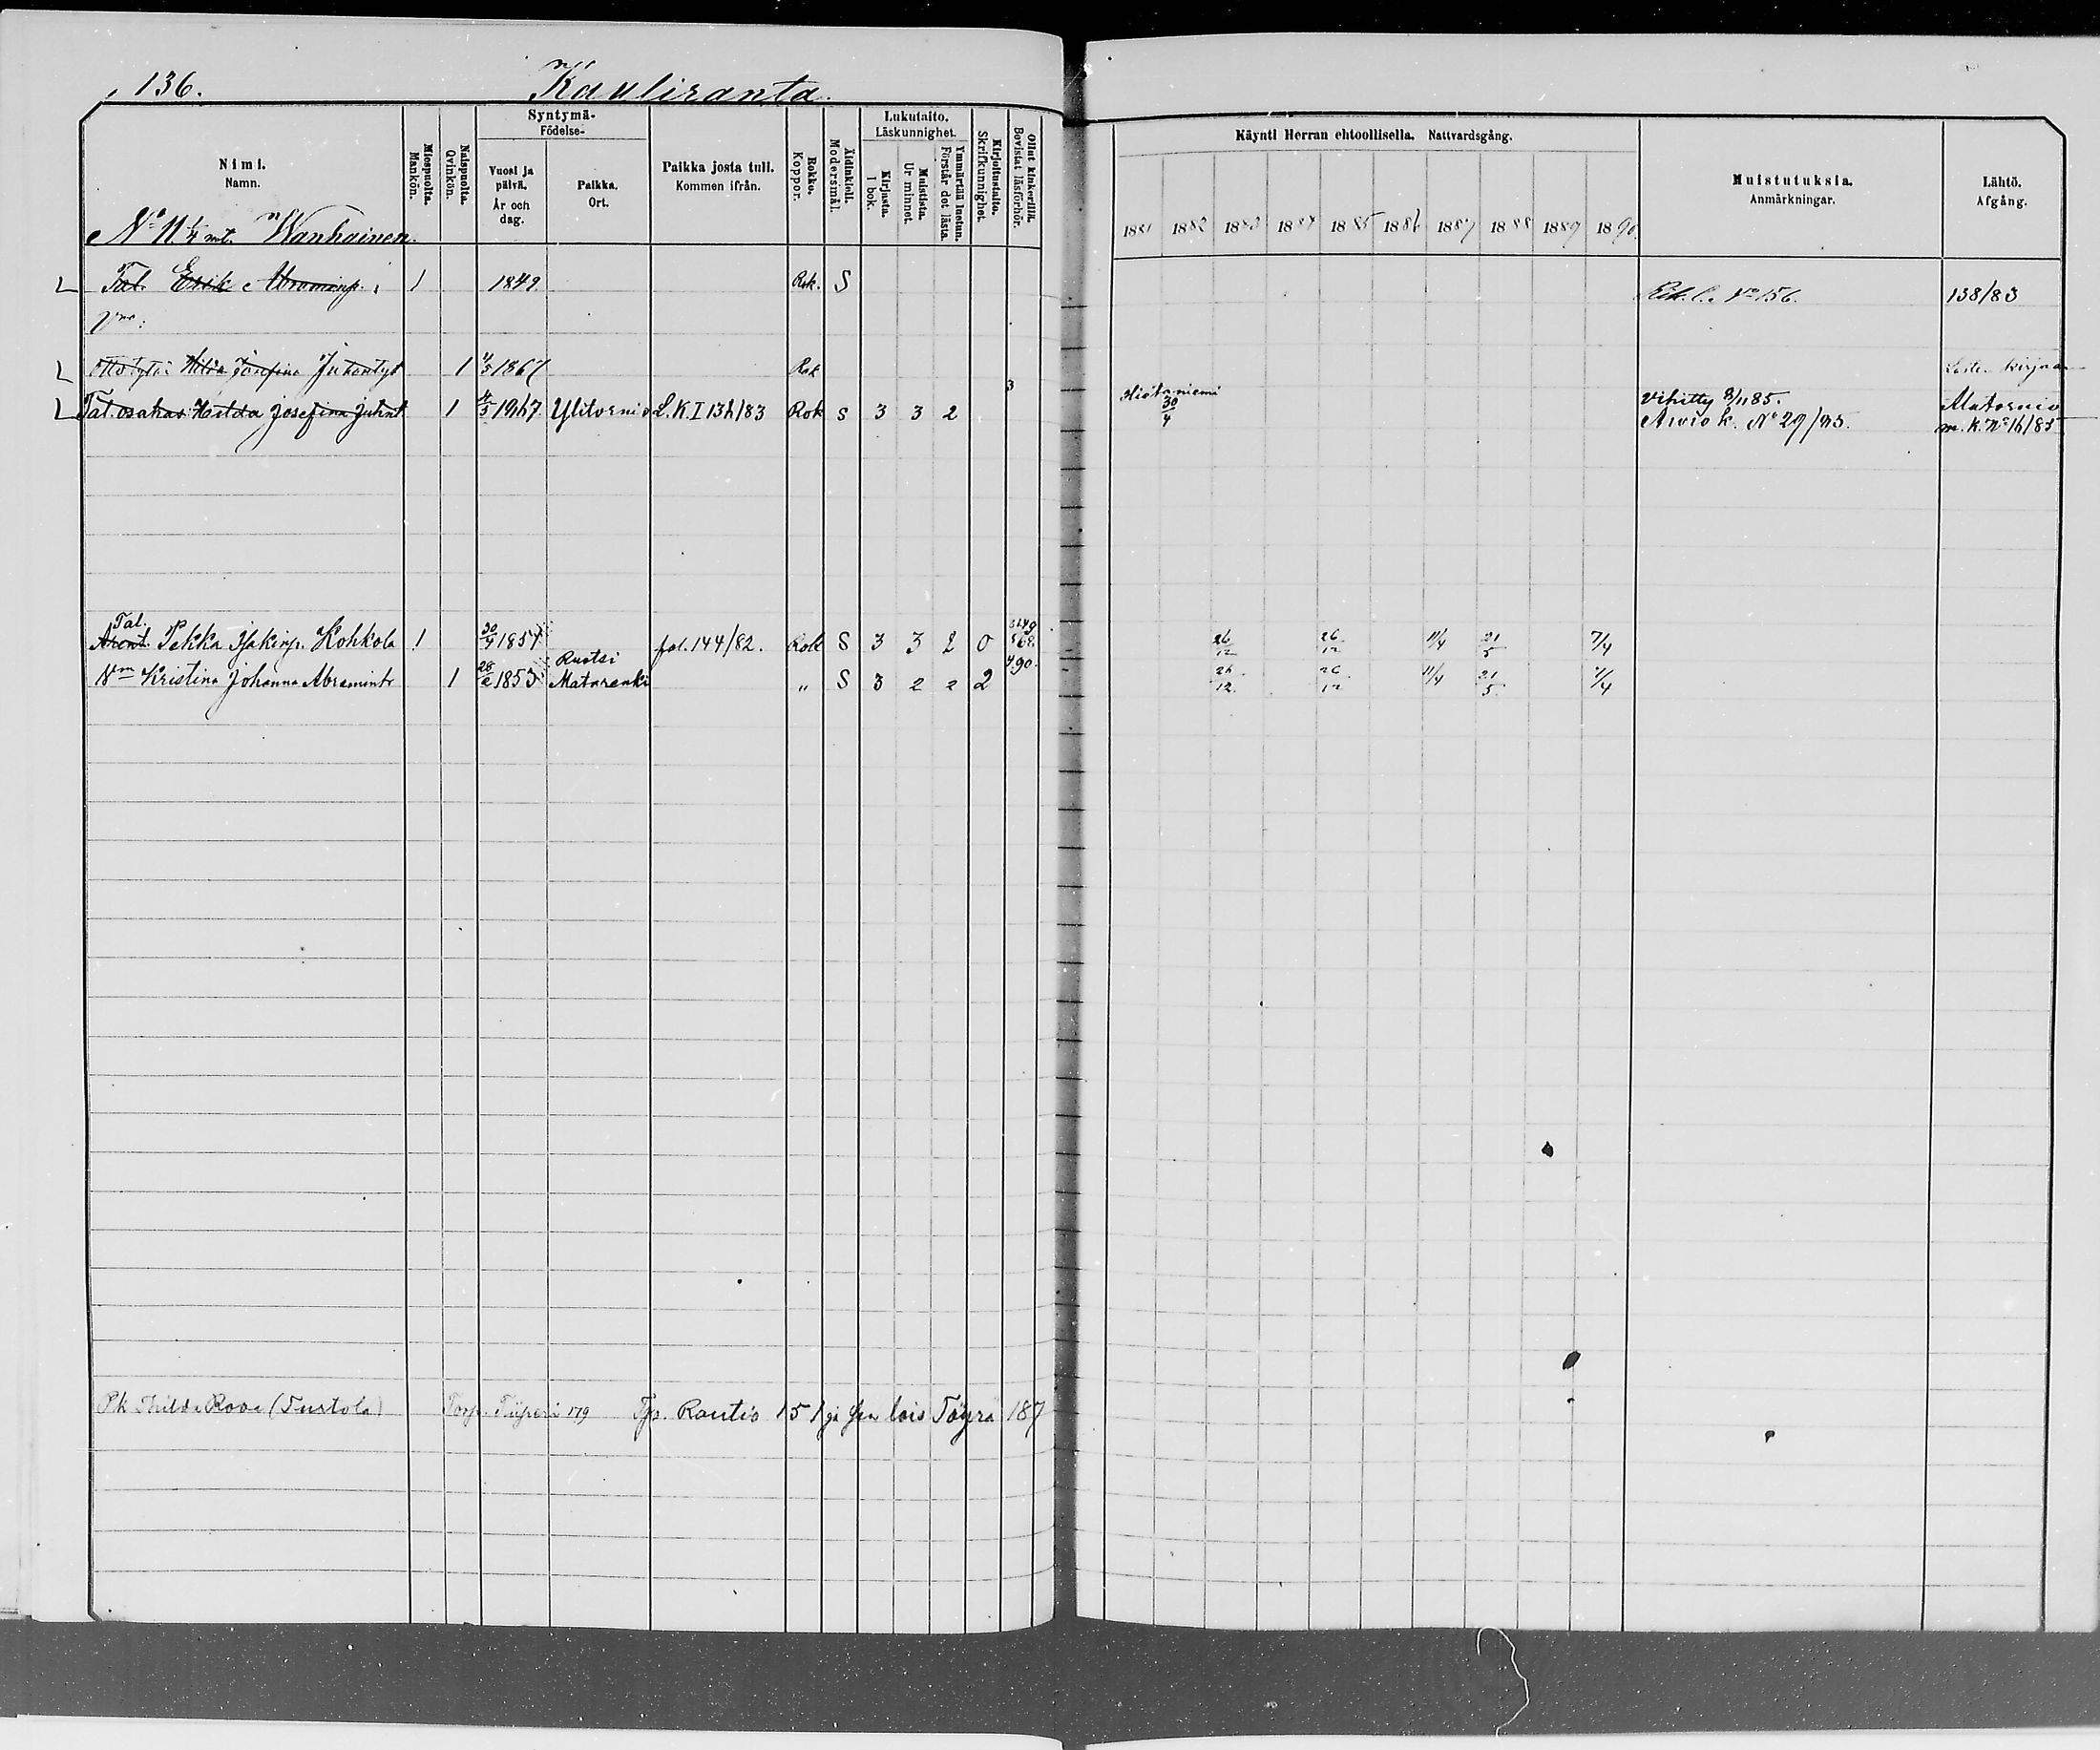 136.
Kauliranta.
Nimi.
Namn.
Miespuolta.
Mankön.
Naispuolta.
Qvinkön.
Syntymä-
Födelse-
Vuosi ja päivä.
År och dag.
Paikka.
Ort.
Paikka josta tuli.
Kommen ifrån.
Rokko.
Koppor.
Äidinkieli.
Modersmål.
Lukutaito.
Läskunnighet.
Kirjasta.
I bok.
Muistista.
Ur minnet.
Ymmärtää luetun.
Förstår det lästa.
Kirjoitustaito.
Skrifkunnighet.
Ollut kinkerillä.
Bevistat läsförhör.
Käynti Herran ehtoollisella. Nattvardsgång.
1881 1882 1883 1884 1885 1886 1887 1888 1889 1890.
Muistutuksia.
Anmärkningar.
Lähtö.
Afgång.
No 11. 1/4 mt. Wanhainen.
Tal. Erik Abrominp. 1 1849. Rok. S No 156. 138/83
Ottotytär Hilda Josefina Juhontyt 1 4/5 1867 Rok Lasten kirjaan
Tal. osakas Hilda Josefina Juhint 1 4/5 1867. Ylitornio L.K. I 132/83 Rok S 3 3 2 3 Hietaniemi 30/4 Vihitty 8/11 85. Alatornio
Aviok. No 29/85. m.k. No 16/85
Tal.
Pekka Isakinp. Kohkola 1 30/4 1854 fol. 144/82. Rok S 3 3 2 0 568. 26/12 26/12 11/4 21/5 7/4
Ruotsi
Wm Kristina Johanna Abramintr 1 28/2 1853 Matarenki " S 3 2 2 2 490. 26/12. 26/12 11/4 21/5. 7/4
Pk Hilda Rova (Turtola) Torp. 179 Tp. Rautio 151 lois Töyrä 187